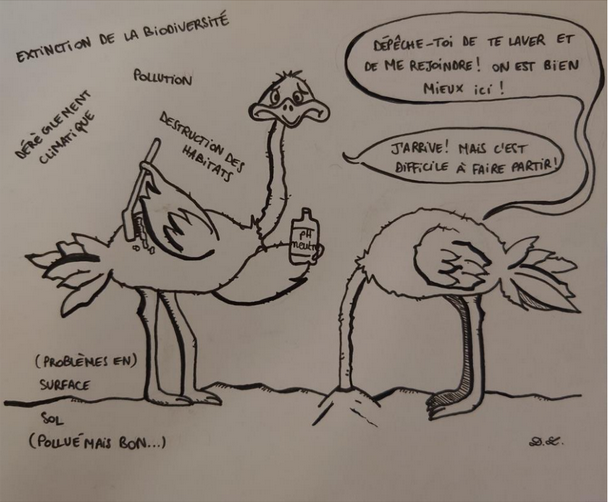 EXTINCTION DE LA BIODIVERSITÉ
POLLUTION
DÉRÈGLEMENT
CLIMATIQUE
DESTRUCTION DES
HABITATS
DÉPÊCHE-TOI DE TE LAVER ET
DE ME REJOINDRE! ON EST BIEN
MIEUX ICI!
J'ARRIVE! MAIS C'EST
DIFFICILE À FAIRE PARTIR!
pH
neutre
(PROBLÈMES EN)
SURFACE
SOL
(POLLUÉ MAIS BON...)